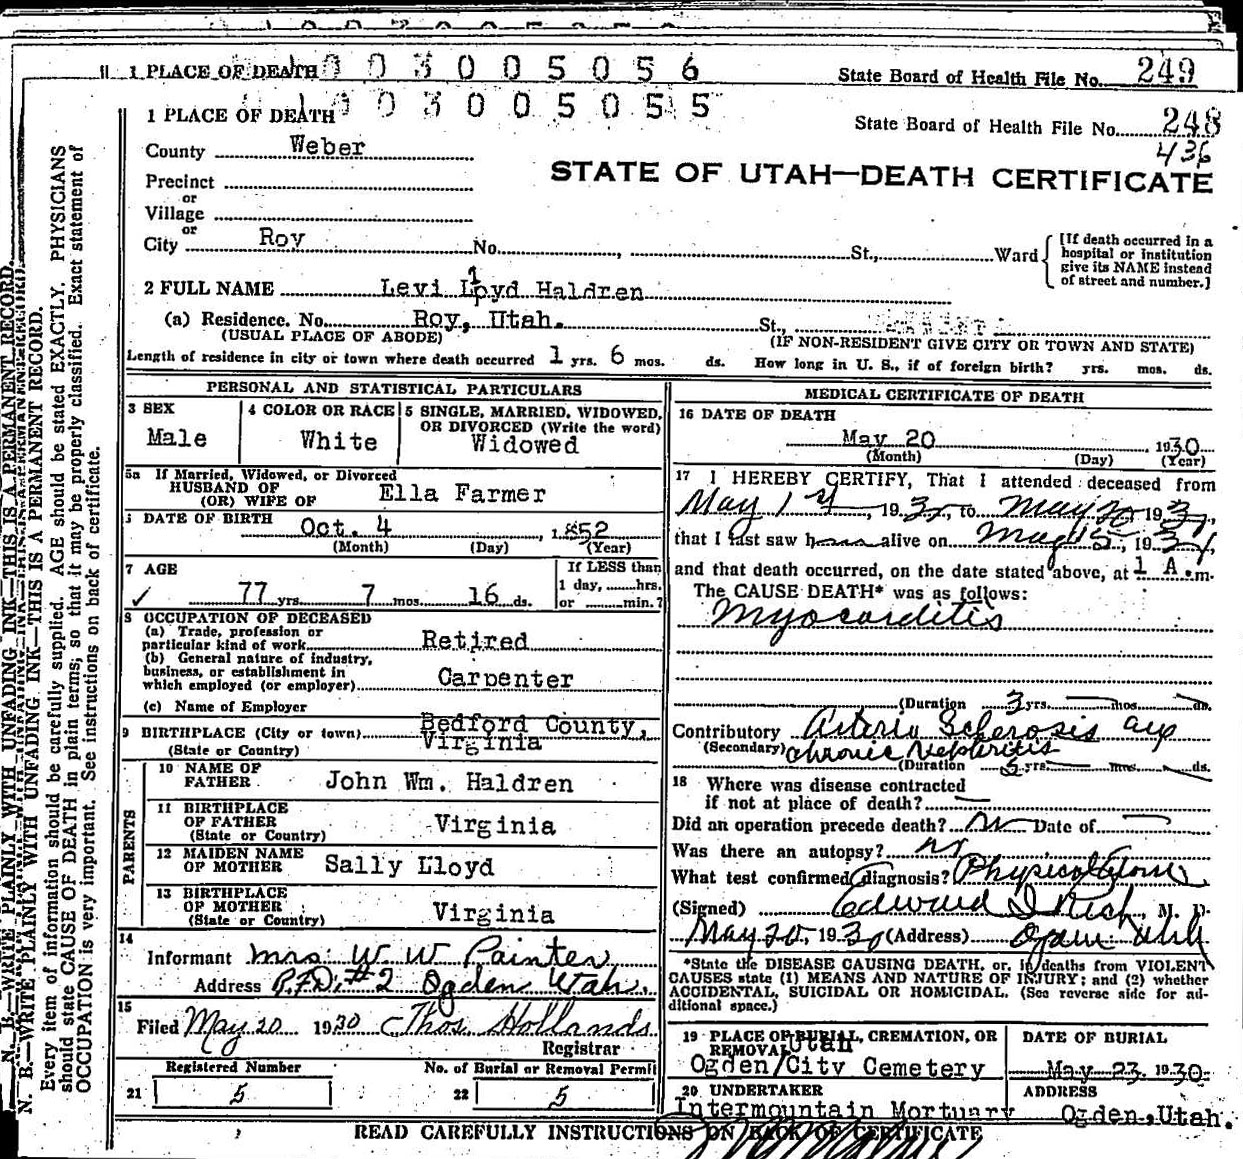 1 PLACE OF DEATH 003005056 State Board of Health File No. 249
1 PLACE OF DEATH 1003005055 State Board of Health File No. 248
County Weber 436
STATE OF UTAH—DEATH CERTIFICATE
Precinct
or
Village
or
City Roy No. , St., Ward
[If death occurred in a hospital or institution give its NAME instead of street and number.]
2 FULL NAME Levi Lloyd Haldren
(a) Residence. No. Roy, Utah. St.,
(USUAL PLACE OF ABODE) (IF NON-RESIDENT GIVE CITY OR TOWN AND STATE)
Length of residence in city or town where death occurred 1 yrs. 6 mos. ds. How long in U. S., if of foreign birth? yrs. mos. ds.
PERSONAL AND STATISTICAL PARTICULARS
3 SEX 4 COLOR OR RACE 5 SINGLE, MARRIED, WIDOWED, OR DIVORCED (Write the word)
Male White Widowed
5a If Married, Widowed, or Divorced
HUSBAND OF
(OR) WIFE OF Ella Farmer
DATE OF BIRTH
Oct. 4, 1852
(Month) (Day) (Year)
7 AGE If LESS than
1 day, hrs.
✓ 77 yrs 7 mos. 16 ds. or min.?
8 OCCUPATION OF DECEASED
(a) Trade, profession or
particular kind of work Retired
(b) General nature of industry,
business, or establishment in
which employed (or employer) Carpenter
(c) Name of Employer
9 BIRTHPLACE (City or town) Bedford County,
(State or Country) Virginia
PARENTS
10 NAME OF
FATHER John Wm. Haldren
11 BIRTHPLACE
OF FATHER Virginia
(State or Country)
12 MAIDEN NAME
OF MOTHER Sally Lloyd
13 BIRTHPLACE
OF MOTHER Virginia
(State or Country)
14
Informant Mrs W W Painter
Address R.F.D. #2 Ogden Utah.
15
Filed May 20 1930 Thos Hollands
Registrar
Registered Number No. of Burial or Removal Permit
21 5 22 5
MEDICAL CERTIFICATE OF DEATH
16 DATE OF DEATH
May 20, 1930
(Month) (Day) (Year)
17 I HEREBY CERTIFY, That I attended deceased from
May 1st, 193 , to May 20 193 ,
that I last saw h alive on May 15, 193 ,
and that death occurred, on the date stated above, at 1 A.m.
The CAUSE DEATH* was as follows:
Myocarditis
(Duration 3 yrs. mos. ds.
Contributory Arterio Sclerosis
(Secondary) Chronic Nephritis
(Duration 5 yrs. mos. ds.
18 Where was disease contracted
if not at place of death?
Did an operation precede death? no Date of
Was there an autopsy? no
What test confirmed diagnosis? Physical Exam
(Signed) Edward I Rich, M. D.
May 20, 1930 (Address) Ogden Utah
*State the DISEASE CAUSING DEATH, or, in deaths from VIOLENT
CAUSES state (1) MEANS AND NATURE OF INJURY; and (2) whether
ACCIDENTAL, SUICIDAL OR HOMICIDAL. (See reverse side for ad-
ditional space.)
19 PLACE OF BURIAL, CREMATION, OR DATE OF BURIAL
REMOVAL Utah
Ogden/City Cemetery May 23, 1930.
20 UNDERTAKER ADDRESS
Intermountain Mortuary Ogden, Utah.
READ CAREFULLY INSTRUCTIONS ON BACK OF CERTIFICATE
N. B.—WRITE PLAINLY WITH UNFADING INK—THIS IS A PERMANENT RECORD.
N. B.—WRITE PLAINLY WITH UNFADING INK—THIS IS A PERMANENT RECORD.
Every item of information should be carefully supplied. AGE should be stated EXACTLY. PHYSICIANS
should state CAUSE OF DEATH in plain terms, so that it may be properly classified. Exact statement of
OCCUPATION is very important. See instructions on back of certificate.